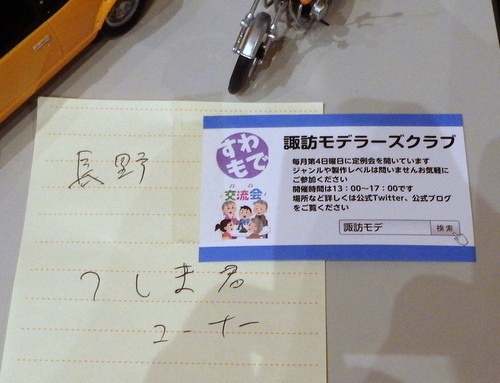 長野
つしま君
コーナー
すわ
もで
交流会
諏訪モデラーズクラブ
毎月第4日曜日に定例会を開いています
ジャンルや製作レベルは問いませんお気軽に
ご参加ください
開催時間は13：00～17：00です
場所など詳しくは公式Twitter、公式ブログ
をご覧ください
諏訪モデ 検索